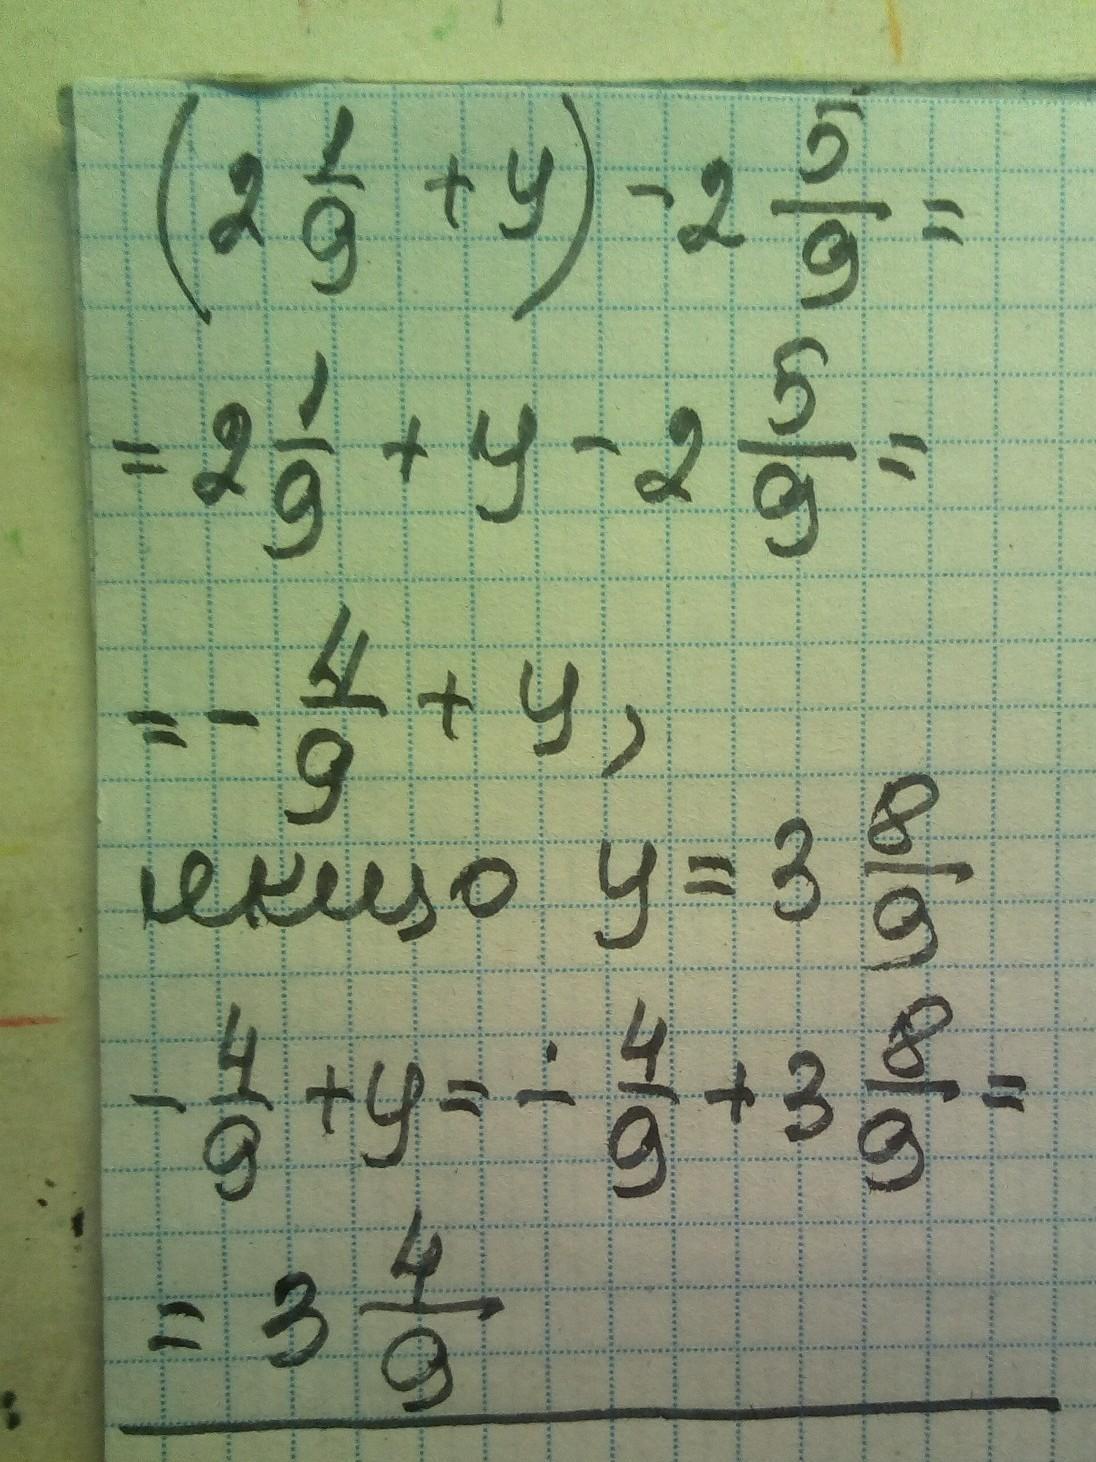 (2 1/9 + y) - 2 5/9 =
= 2 1/9 + y - 2 5/9 =
= - 4/9 + y,
якщо y = 3 8/9
- 4/9 + y = - 4/9 + 3 8/9 =
= 3 4/9